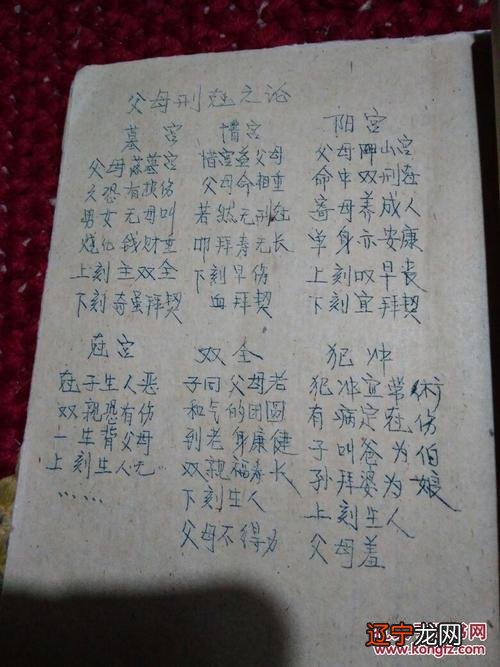 父母刑尅之论
墓宫
父母 墓宫
又恐有损伤
男女无母叫
烧化钱财重
上刻主双全
下刻奇蛋拜契
惜宫
惜宫 父母
父母命相重
若然无刑尅
叩拜寿元长
下刻早伤
血拜契
阳宫
父母 山宫
命中双刑尅
寄母养成人
洋身亦安康
上刻叹早丧
下刻宜拜契
尅宫
尅子生人恶
双亲恐有伤
一生背父母
上刻生人无
……
双全
子向父母君
和气的团圆
到老身康健
双亲福寿长
下刻生人
父母不得力
犯冲
犯冲宜常
有病定在伤
子叫爸为伯
孙拜婆为娘
上刻生人
父母羞
辽宁龙网
www.kongfz.com